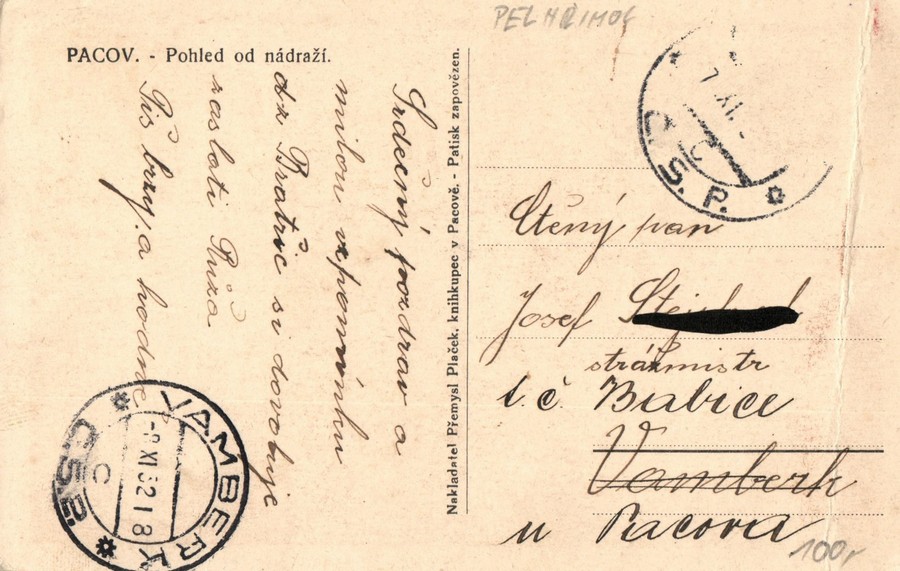 PELHŘIMOV
PACOV. - Pohled od nádraží.
Srdečný pozdrav a
milou vzpomínku
dz Bratric si dovoluje
zaslati Růža
Piš brzy. a hodně
Nakladatel Přemysl Plaček, knihkupec v Pacově. - Patisk zapovězen.
7 XI.
C
Č.S.P.
Ctěný pan
Josef
strážmistr
t. č. Babice
Vamberk
u Pacova
100,-
VAMBERK
-8 XI 32 18
C
Č.S.P.